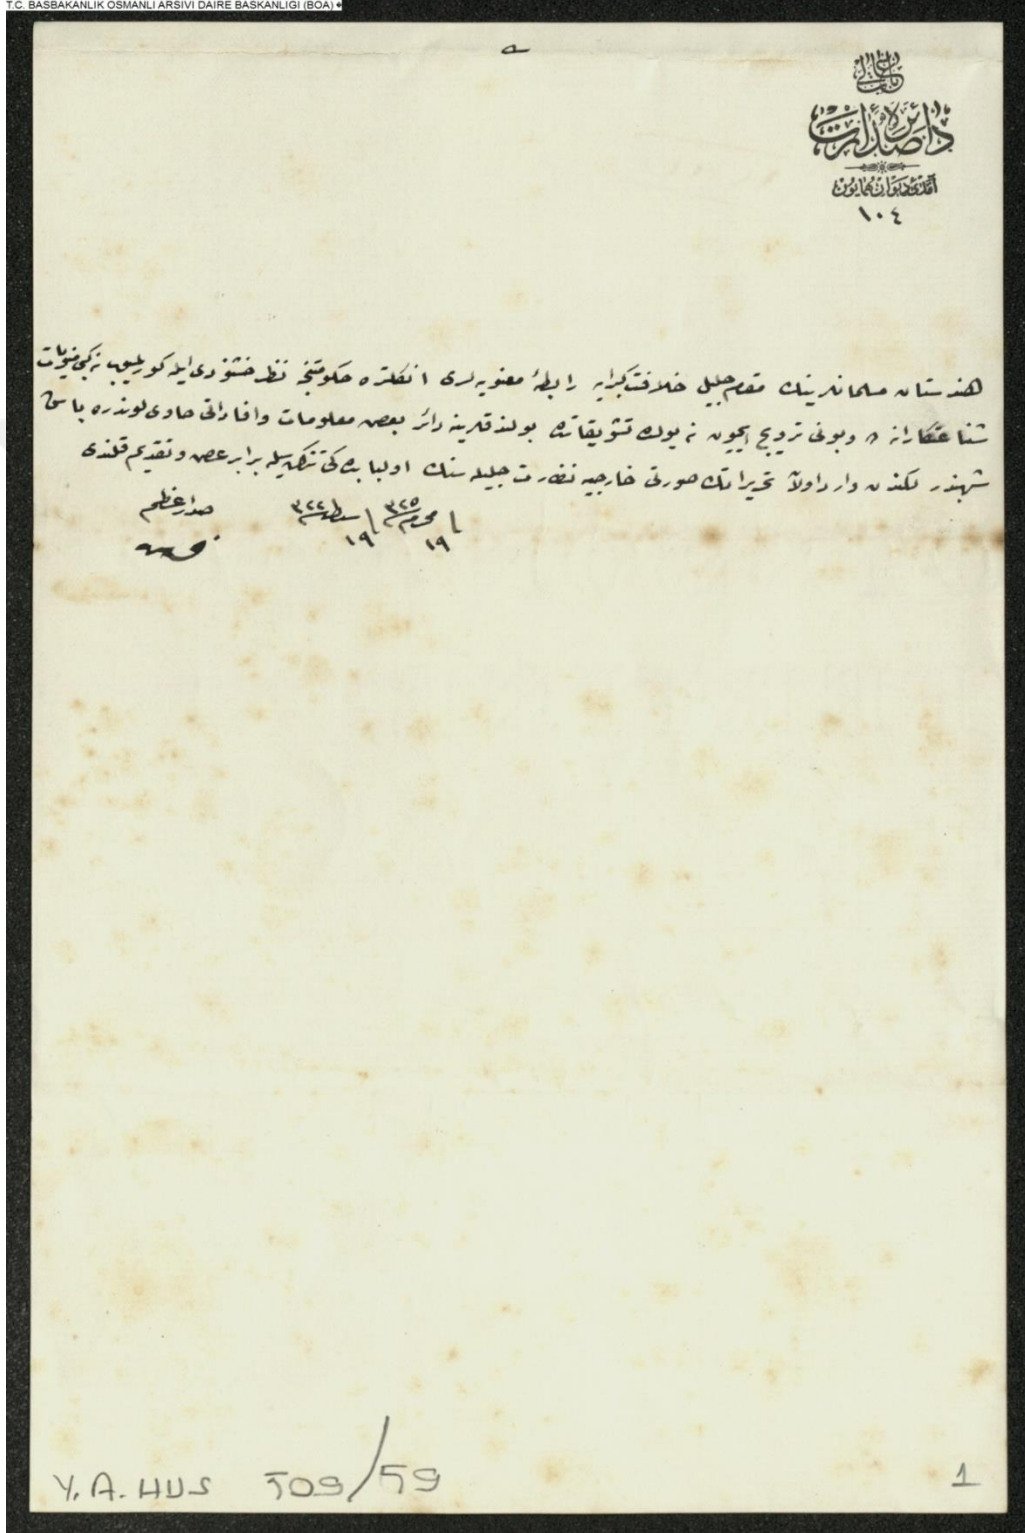 T.C. BASBAKANLIK OSMANLI ARSIVI DAIRE BASKANLIGI (BOA)
باب عالی
دائرۀ صدارت
آمدی دیوان همایون
١٠٤
هندستان مسلمانلرینك مقام جلیل خلافت کبرایه رابطۀ معنویه لری انکلتره حکومتنجه نظر خشنودی ایله کورلمیوب نه کبی
وبونی ترویج ایچون نه یولده تشویقاتده بولندقلرینه دائر بعض معلومات وافاداتی حاوی لوندره باش
شهبندرلکندن وارد اولان تحریراتك صورتی خارجیه نظارت جلیله سنك اولبابده کی تذکره سیله برابر عرض وتقدیم قلندی
١٩ محرم ٣٢٥ ١٩ شباط ٣٢٢ صدراعظم
Y.A.HUS 509/59
1